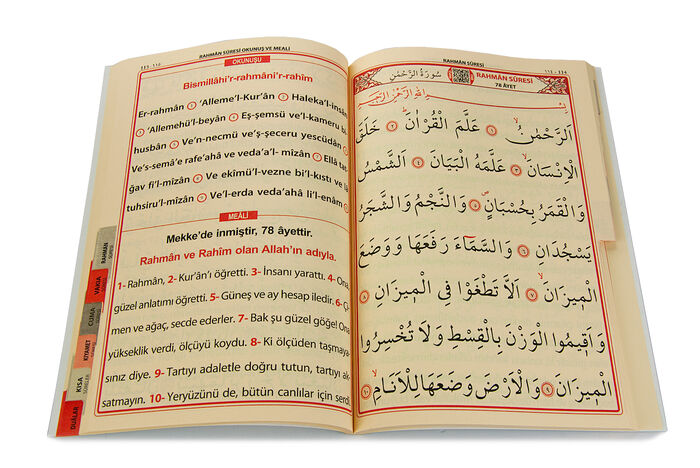 RAHMÂN SÛRESİ OKUNUŞ VE MEÂLİ
OKUNUŞU
Bismillâhi'r-rahmâni'r-rahîm
Er-rahmân ① 'Alleme'l-Kur'ân ② Haleka'l-insân
③ 'Allemehü'l-beyân ④ Eş-şemsü ve'l-kameru bi
husbân ⑤ Ve'n-necmü ve'ş-şeceru yescüdân
Ve's-semâ'e rafe'ahâ ve veda'a'l- mîzân ⑦ Ellâ
ğav fi'l-mîzân ⑧ Ve ekîmü'l-vezne bi'l-kıstı ve lâ
tuhsiru'l-mîzân ⑨ Ve'l-erda veda'ahâ li'l-enâm
MEÂLİ
Mekke'de inmiştir, 78 âyettir.
Rahmân ve Rahîm olan Allah'ın adıyla.
1- Rahmân, 2- Kur'ân'ı öğretti. 3- İnsanı yarattı. 4- Ona
güzel anlatımı öğretti. 5- Güneş ve ay hesap iledir. 6-
men ve ağaç, secde ederler. 7- Bak şu güzel göğe! Onu
yükseklik verdi, ölçüyü koydu. 8- Ki ölçüden taşmaya
sınız diye. 9- Tartıyı adaletle doğru tutun, tartıyı
satmayın. 10- Yeryüzünü de, bütün canlılar için
RAHMAN
VAKIA
CUMA
KIYAMET
KISA
DUALAR
RAHMÂN SÛRESİ
سُورَةُ الرَّحْمٰنِ
RAHMÂN SÛRESİ
78 ÂYET
بِسْمِ اللّٰهِ الرَّحْمٰنِ الرَّحِيمِ
اَلرَّحْمٰنُۙ ١ عَلَّمَ الْقُرْاٰنَۜ ٢ خَلَقَ
الْاِنْسَانَۙ ٣ عَلَّمَهُ الْبَيَانَ ٤ اَلشَّمْسُ
وَالْقَمَرُ بِحُسْبَانٍۖ ٥ وَالنَّجْمُ وَالشَّجَرُ
يَسْجُدَانِ ٦ وَالسَّمَٓاءَ رَفَعَهَا وَوَضَعَ
الْمٖيزَانَۙ ٧ اَلَّا تَطْغَوْا فِي الْمٖيزَانِ ٨
وَاَقٖيمُوا الْوَزْنَ بِالْقِسْطِ وَلَا تُخْسِرُوا
الْمٖيزَانَ ٩ وَالْاَرْضَ وَضَعَهَا لِلْاَنَامِۙ ١٠